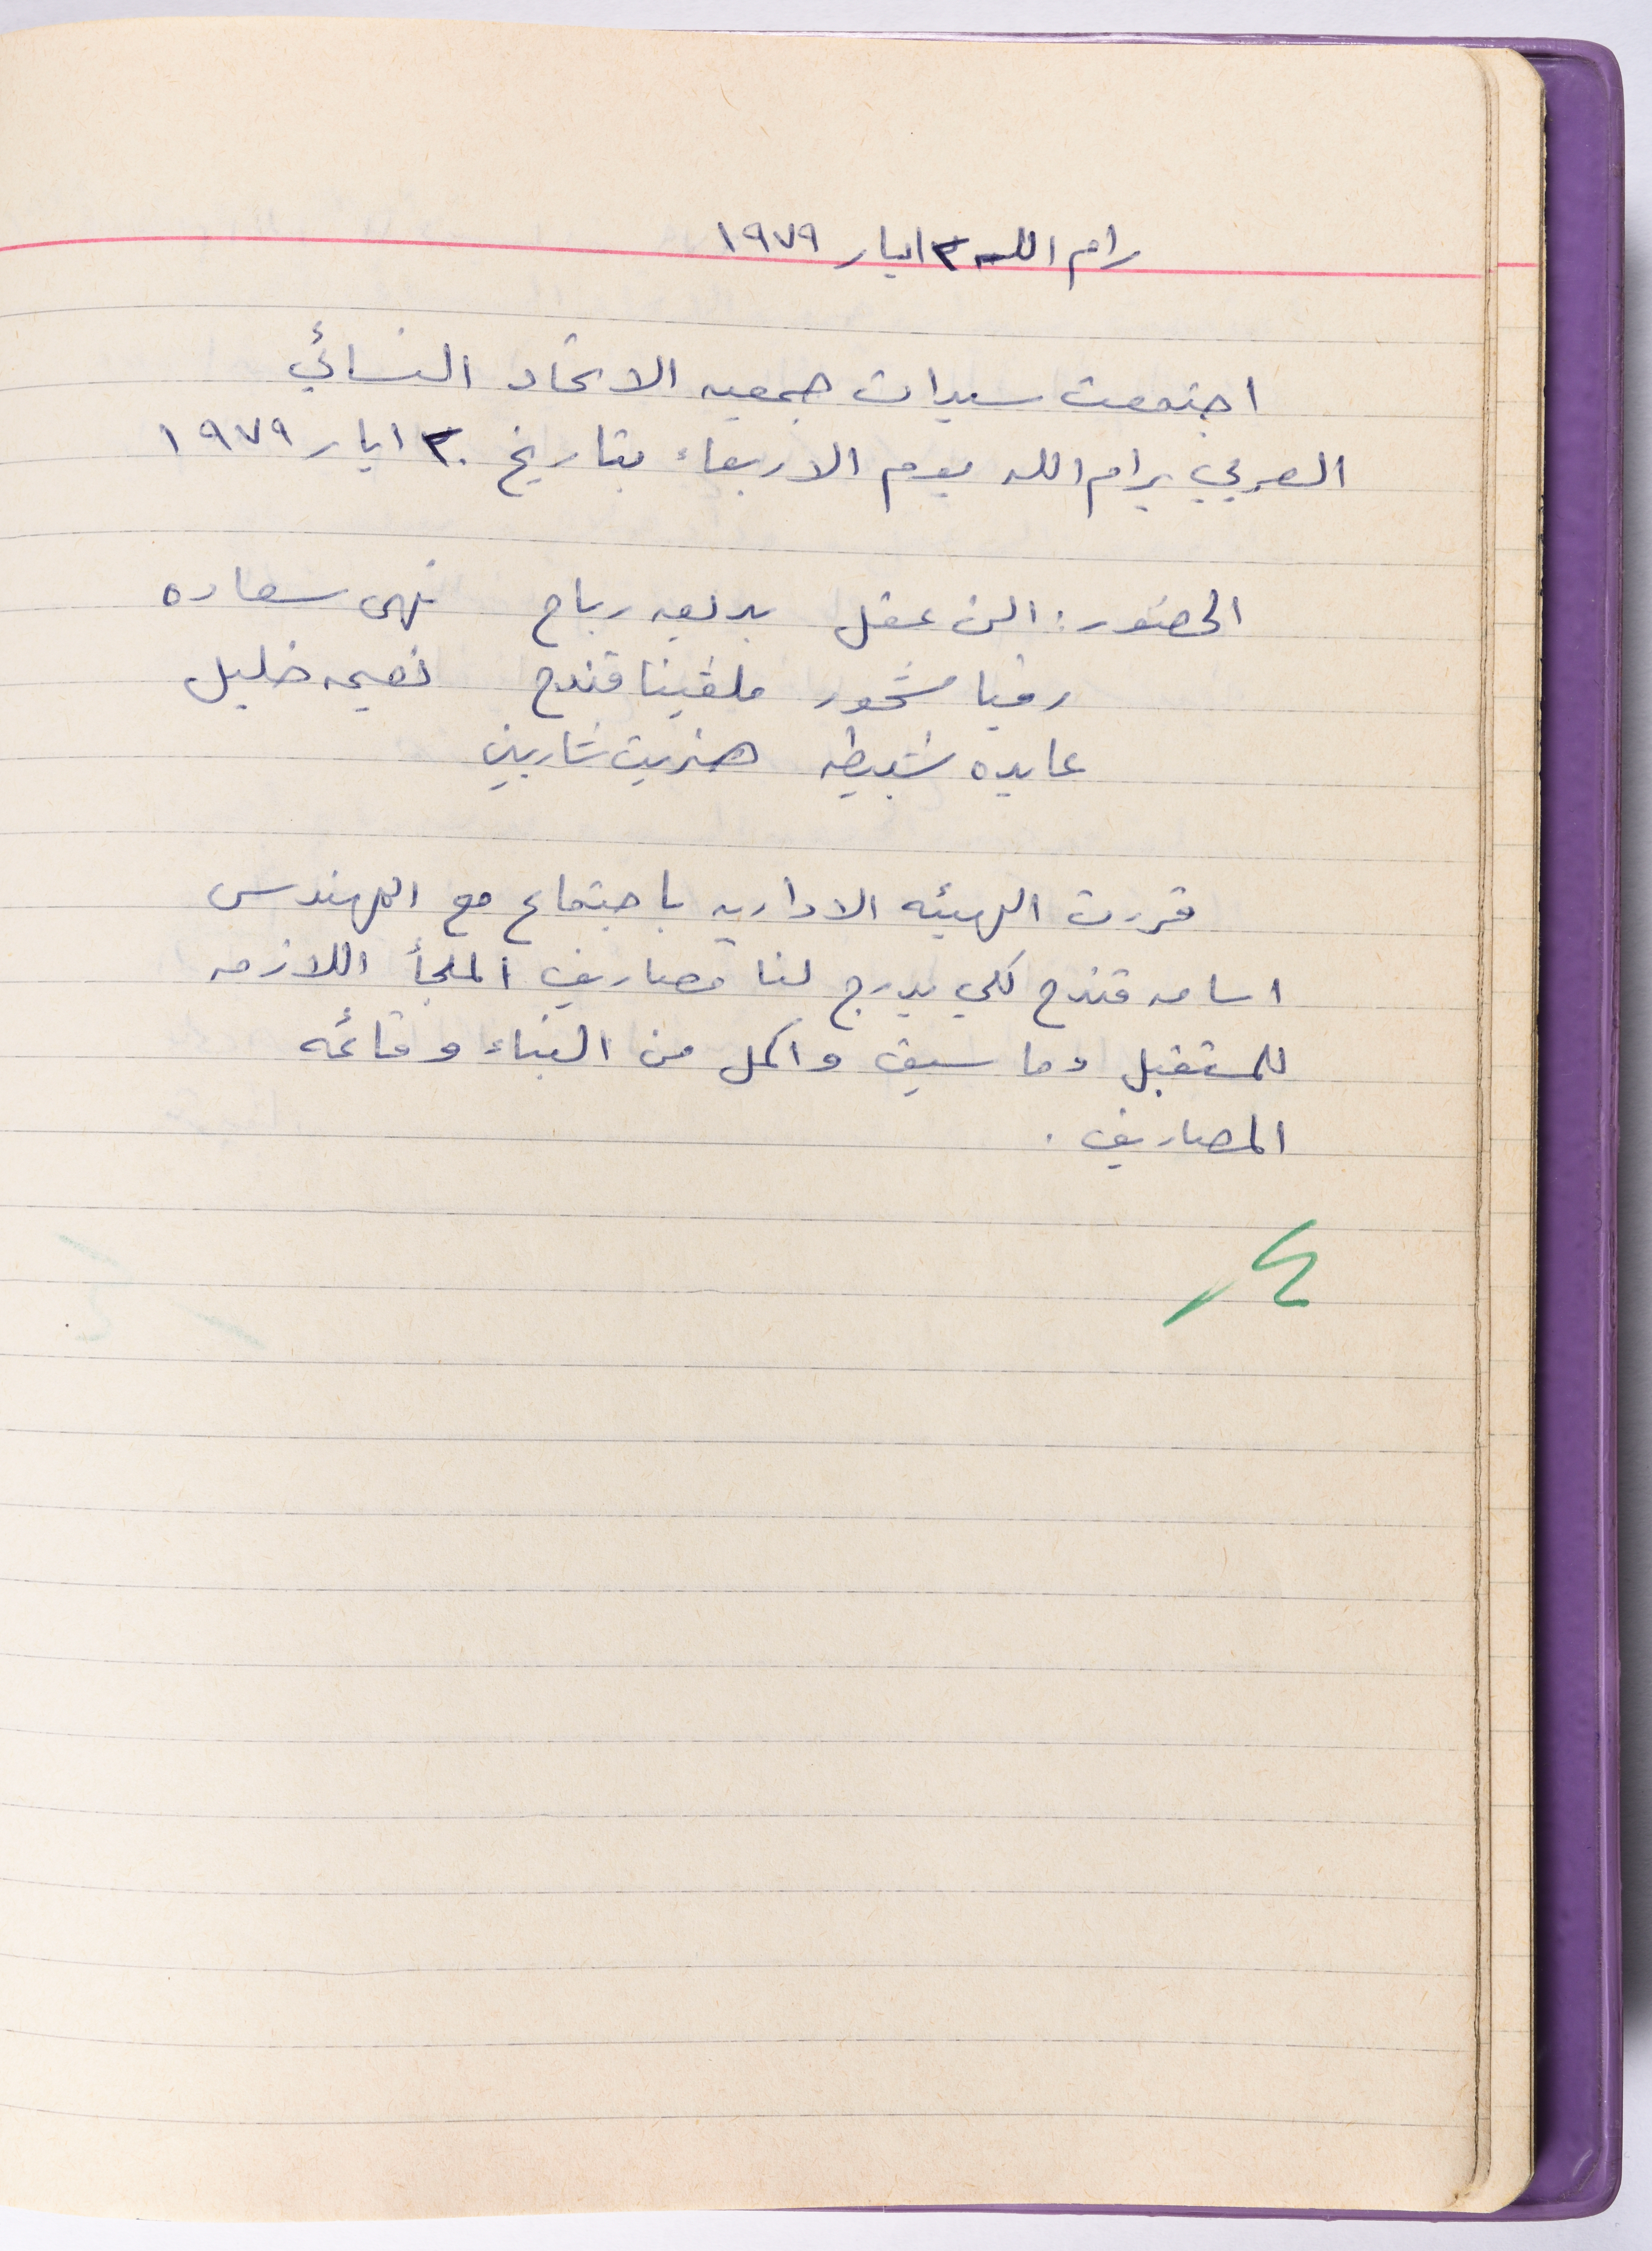 رام الله ٣٠ ايار ١٩٧٩
اجتمعت سيدات جمعيه الاتحاد النسائي
العربي برام الله يوم الاربعاء بتاريخ ٣٠ ايار ١٩٧٩
الحضور: الن عقل بديعه رباح نهى سعاده
روفيا شحور ملفينا قندح نعيمه خليل
عايده شبيطه هنرييت شاربين
قررت الهيئه الاداريه باجتماع مع المهندس
اسامه قندح لكي يدرج لنا مصاريف الملجأ اللازمه
للمستقبل وما سبق واكمل من البناء وقائمه
المصاريف .